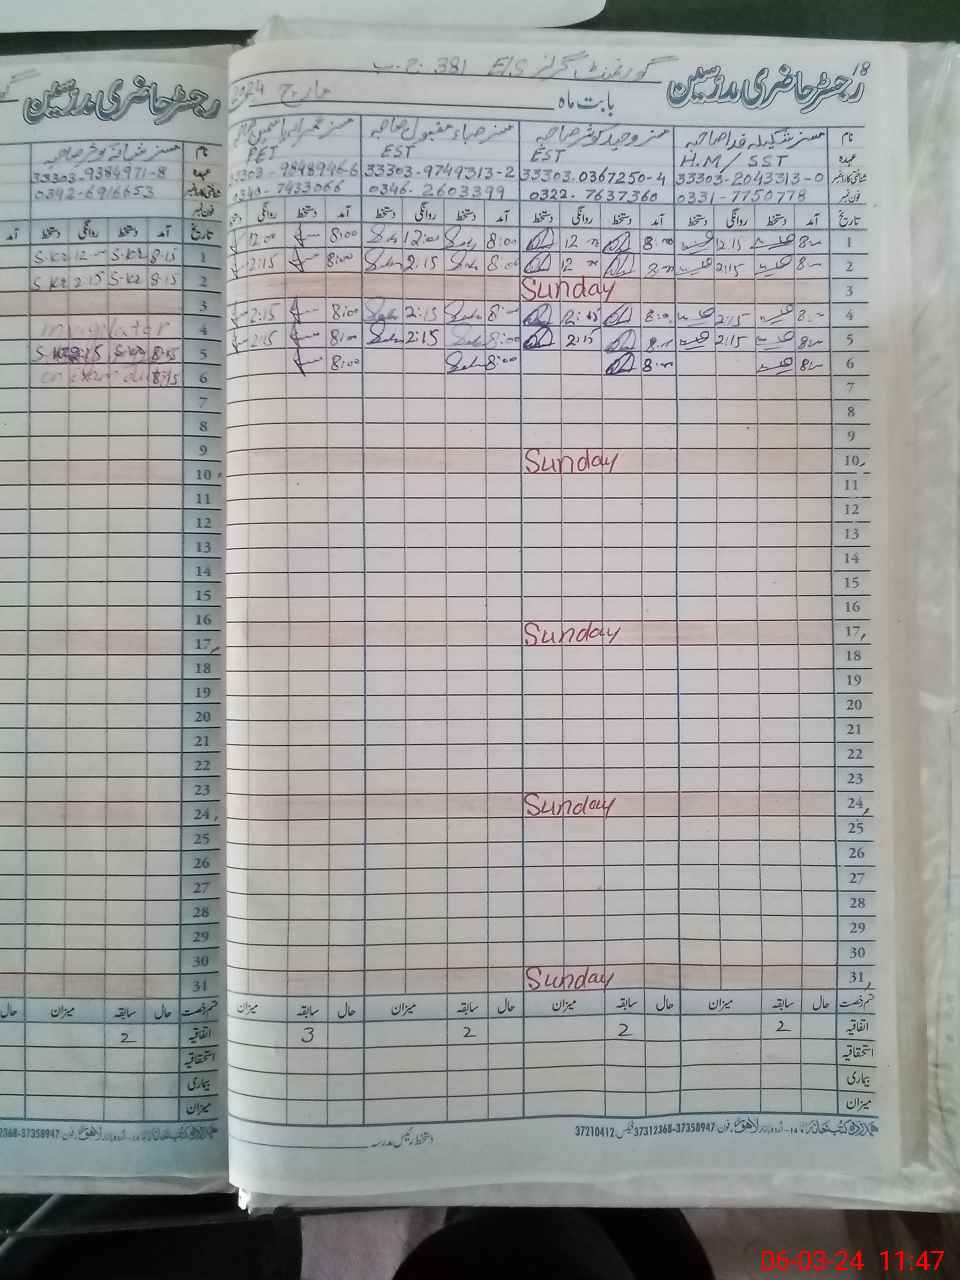 18
رجسٹر حاضری مدرسین
گورنمنٹ گرلز E/S 381 ج.ب
بابت ماہ مارچ 2024
نام
مسز شکیلہ فدا صاحبہ
مسز وحیدہ کوثر صاحبہ
مسز صباء مقبول صاحبہ
عہدہ
H.M/SST
EST
EST
PET
شناختی کارڈ نمبر
33303-2043313-0
33303-0367250-4
33303-9749313-2
33303-9848946-6
فون نمبر
0331-7750778
0322-7637360
0346-2603399
0340-7433066
تاریخ آمد دستخط روانگی دستخط آمد دستخط روانگی دستخط آمد دستخط روانگی دستخط آمد دستخط روانگی دستخط
1 8:00 12:15 8:00 12:00 8:00 12:00 8:00 12:00
2 8:00 2:15 8:00 12:00 8:00 2:15 8:00 2:15
3 Sunday
4 8:00 2:15 8:00 2:15 8:00 2:15 8:00 2:15
5 8:00 2:15 8:00 2:15 8:00 2:15 8:00 2:15
6 8:00 8:00 8:00 8:00
7
8
9
10 Sunday
11
12
13
14
15
16
17 Sunday
18
19
20
21
22
23
24 Sunday
25
26
27
28
29
30
31 Sunday
قسم رخصت حال سابقہ میزان حال سابقہ میزان حال سابقہ میزان حال سابقہ میزان
اتفاقیہ 2 2 2 3
استحقاقیہ
بیماری
میزان
37358947-37312368 فیکس 37210412
دستخط رئیس مدرسہ
رجسٹر حاضری مدرسین
نام
عہدہ
شناختی کارڈ نمبر
33303-9384971-8
فون نمبر
0342-6916653
تاریخ آمد دستخط روانگی دستخط آمد
1 8:15 S-K2 12:00 S-K2
2 8:15 S-K2 2:15 S-K2
3
4 invigilator
5 8:15 S-K2 2:15 S-K2
6 8:15 on exam duty
7
8
9
10
11
12
13
14
15
16
17
18
19
20
21
22
23
24
25
26
27
28
29
30
31
قسم رخصت حال سابقہ میزان حال
اتفاقیہ 2
استحقاقیہ
بیماری
میزان
06-03-24 11:47